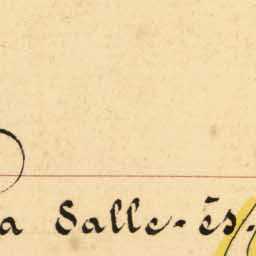 a Salle-ès-